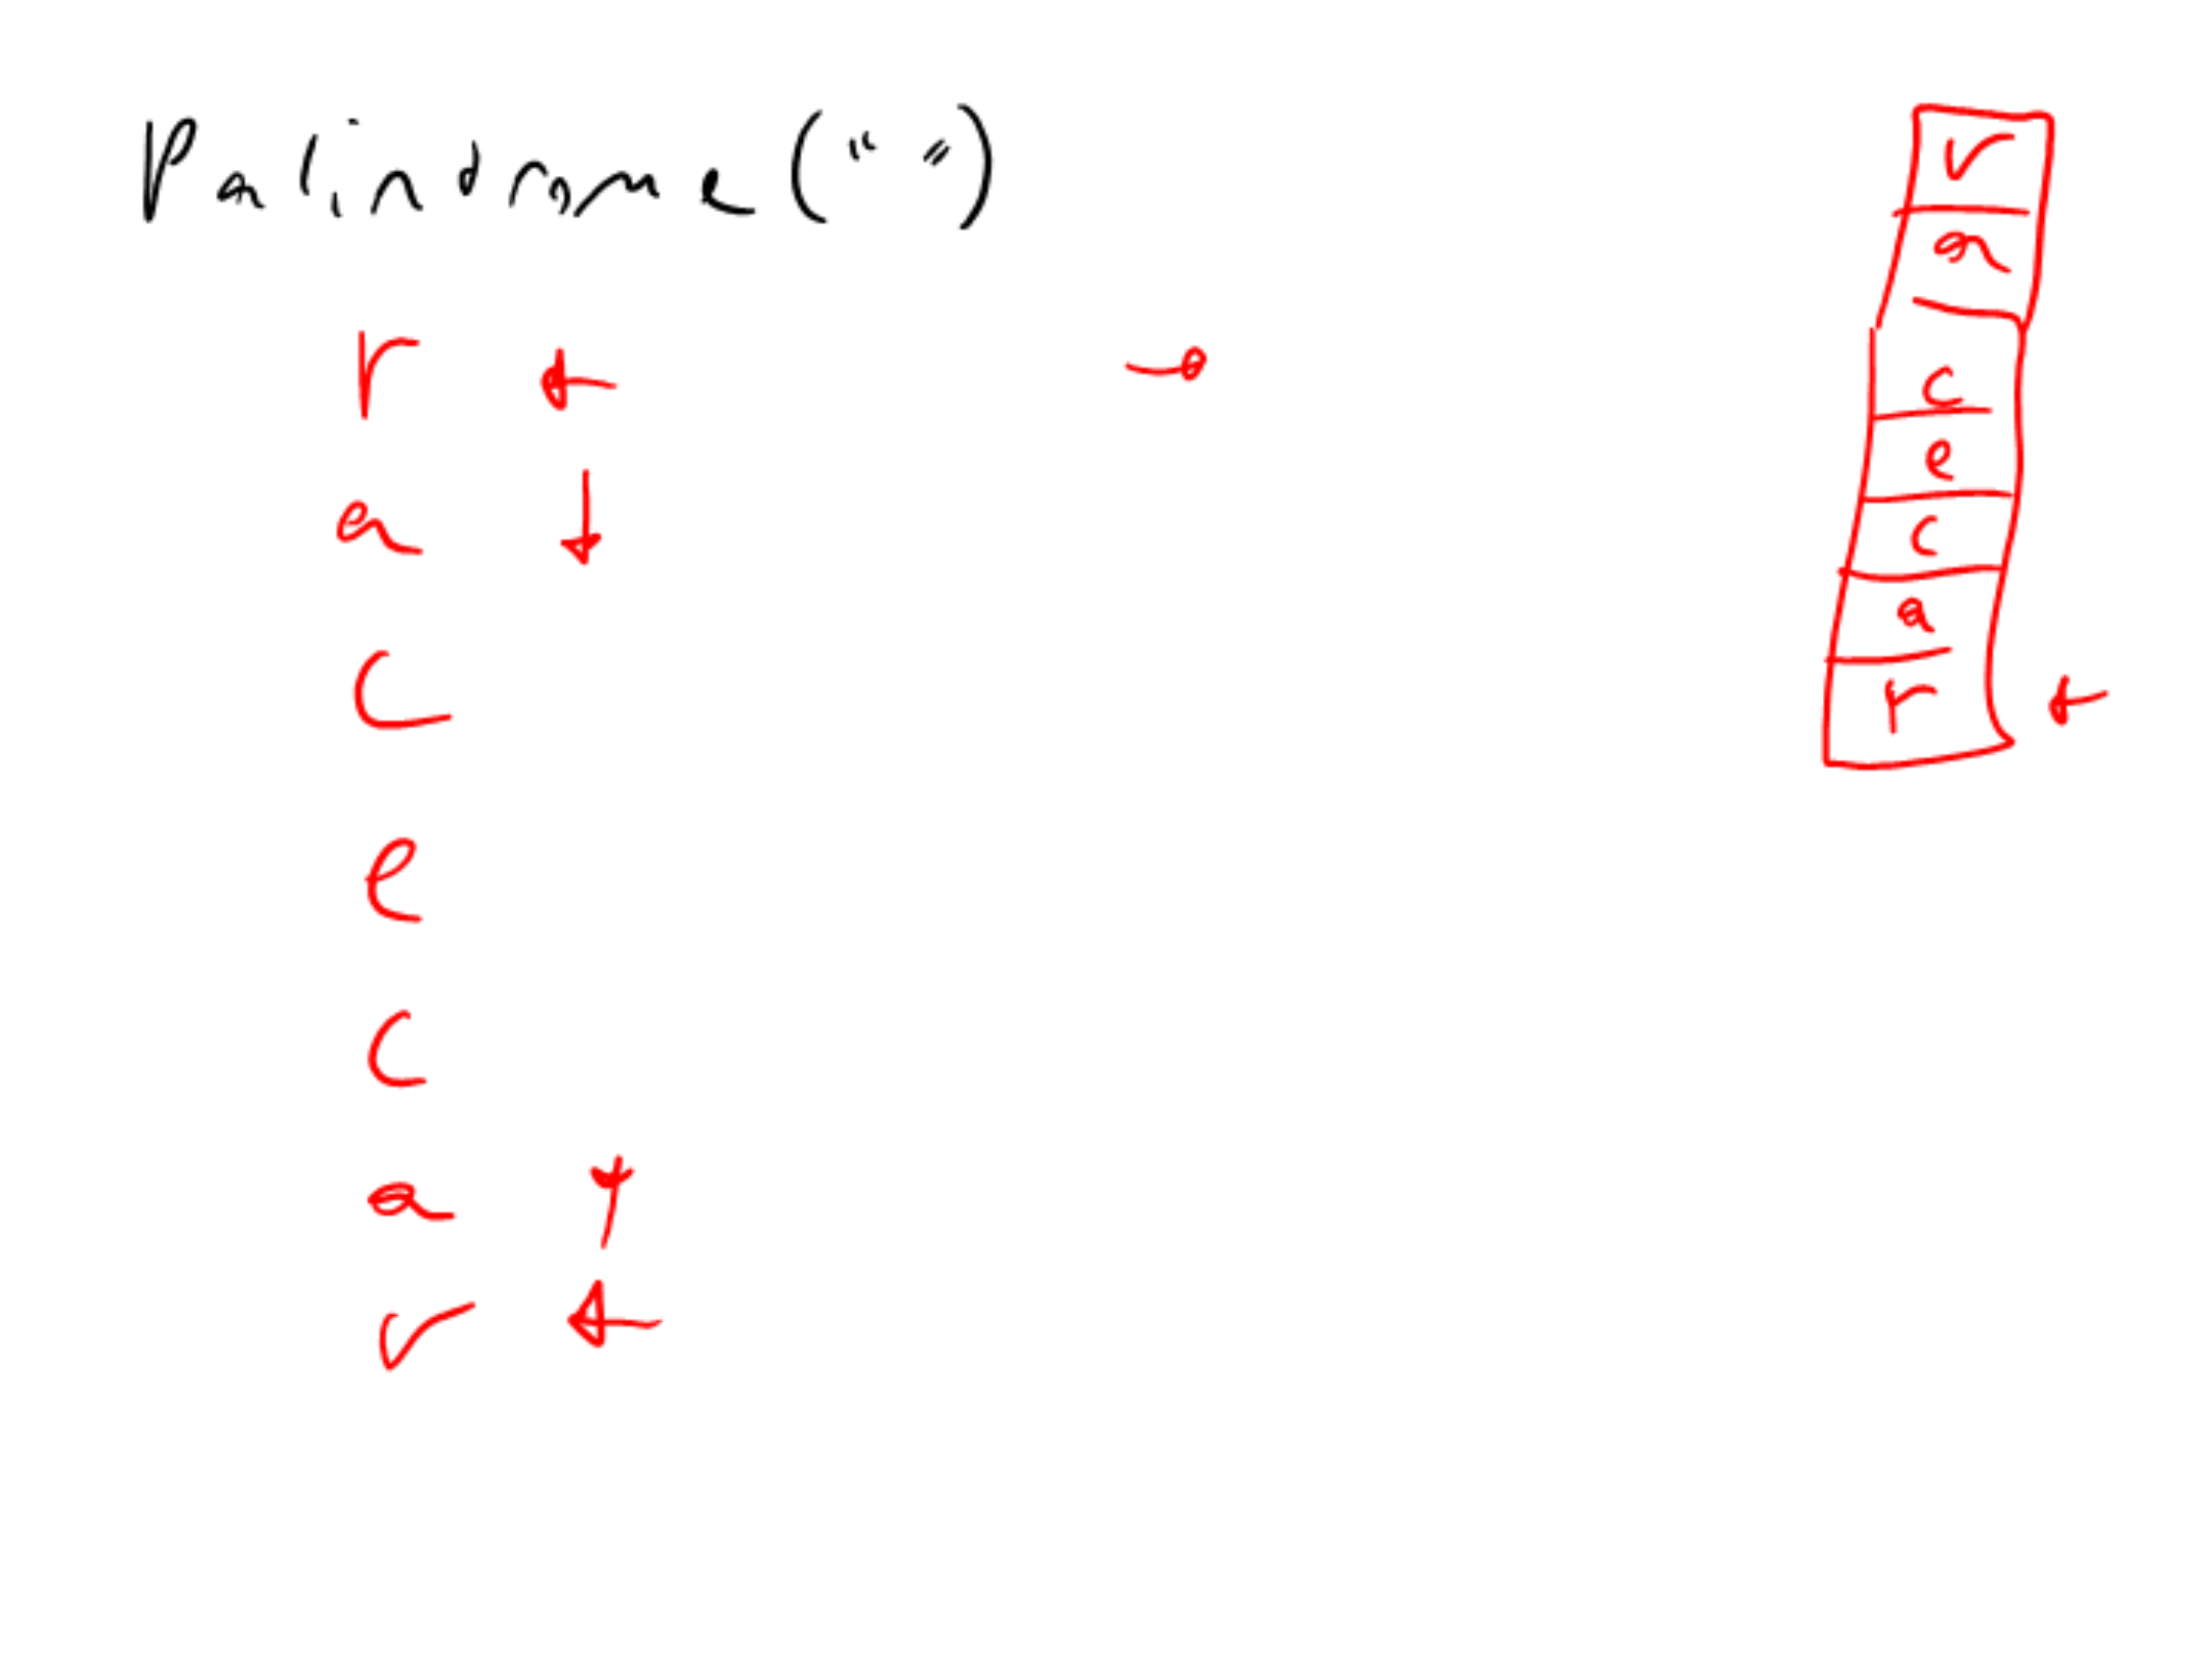 Palindrome(“ ”)
r
a
c
e
c
a
r
r
a
c
e
c
a
r